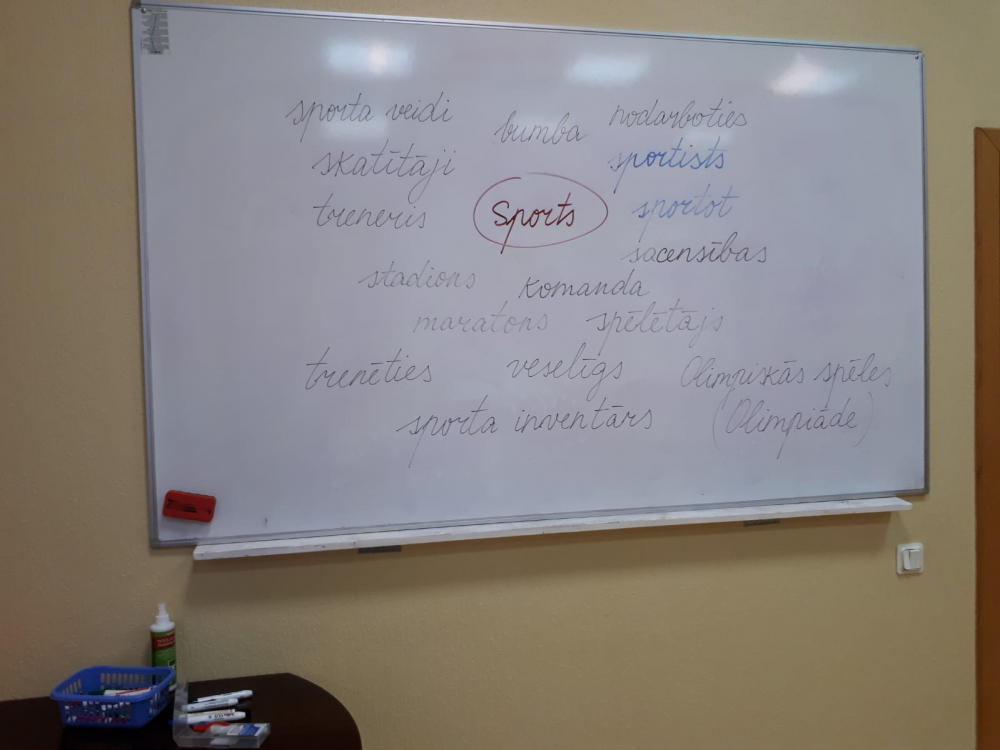 sporta veidi bumba nodarboties
skatītāji sportists
treneris Sports sportot
sacensības
stadions komanda
maratons spēlētājs
trenēties veselīgs Olimpiskās spēles
sporta inventārs (Olimpiāde)